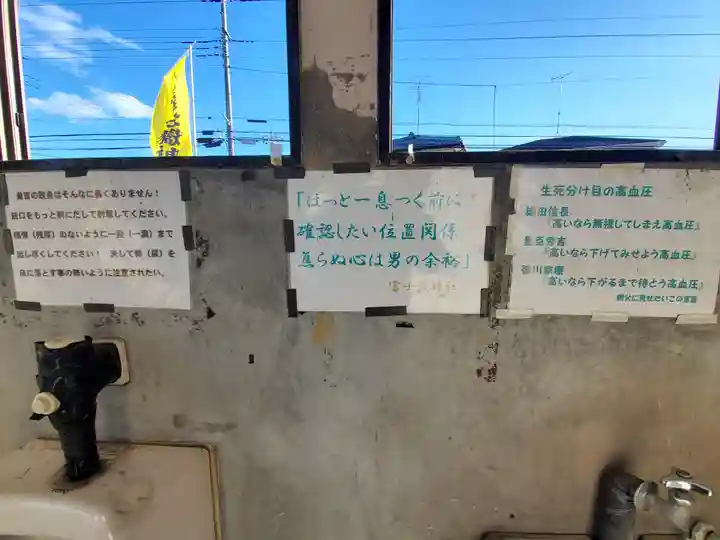 貴官の銃身はそんなに長くありません！
銃口をもっと前にだして射撃してください。
残弾（残尿）のないように一発（一滴）まで
出し尽くしてください！　決して弾（尿）を
床に落とす事の無いように注意されたい。
「ほっと一息つく前に
確認したい位置関係
焦らぬ心は男の余裕」
生死分け目の高血圧
織田信長
『高いなら無視してしまえ高血圧』
豊臣秀吉
『高いなら下げてみせよう高血圧』
徳川家康
『高いなら下がるまで待とう高血圧』
親父に見せたいこの言葉